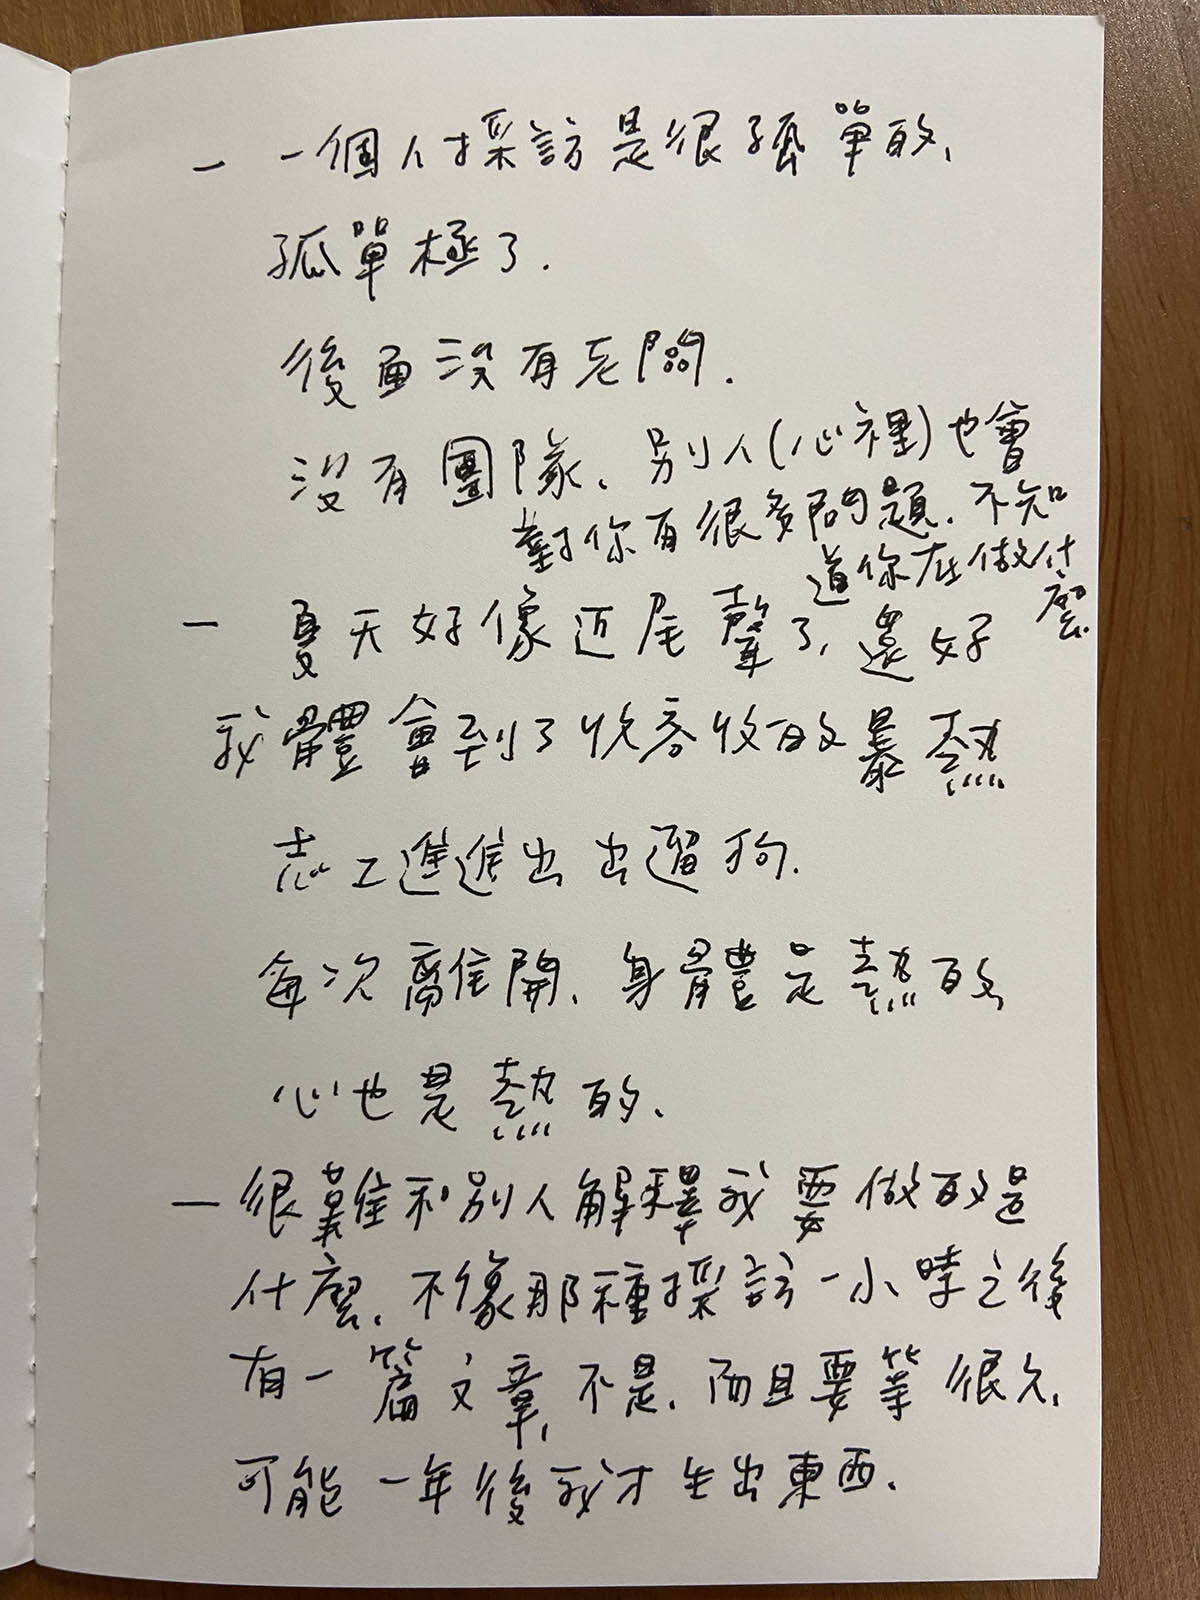 一 一個人採訪是很孤單的、
孤單極了.
後面沒有老闆.
沒有團隊、別人(心裡)也會
對你有很多問題、不知
道你在做什
麼.
一 夏天好像近尾聲了, 還好
我體會到了收容收的最熱
志工進進出出遛狗.
每次離開、身體是熱的
心也是熱的、
一 很難和別人解釋我要做的是
什麼、不像那種採訪一小時之後
有一篇文章、不是、而且要等很久、
可能一年後我才生出東西、